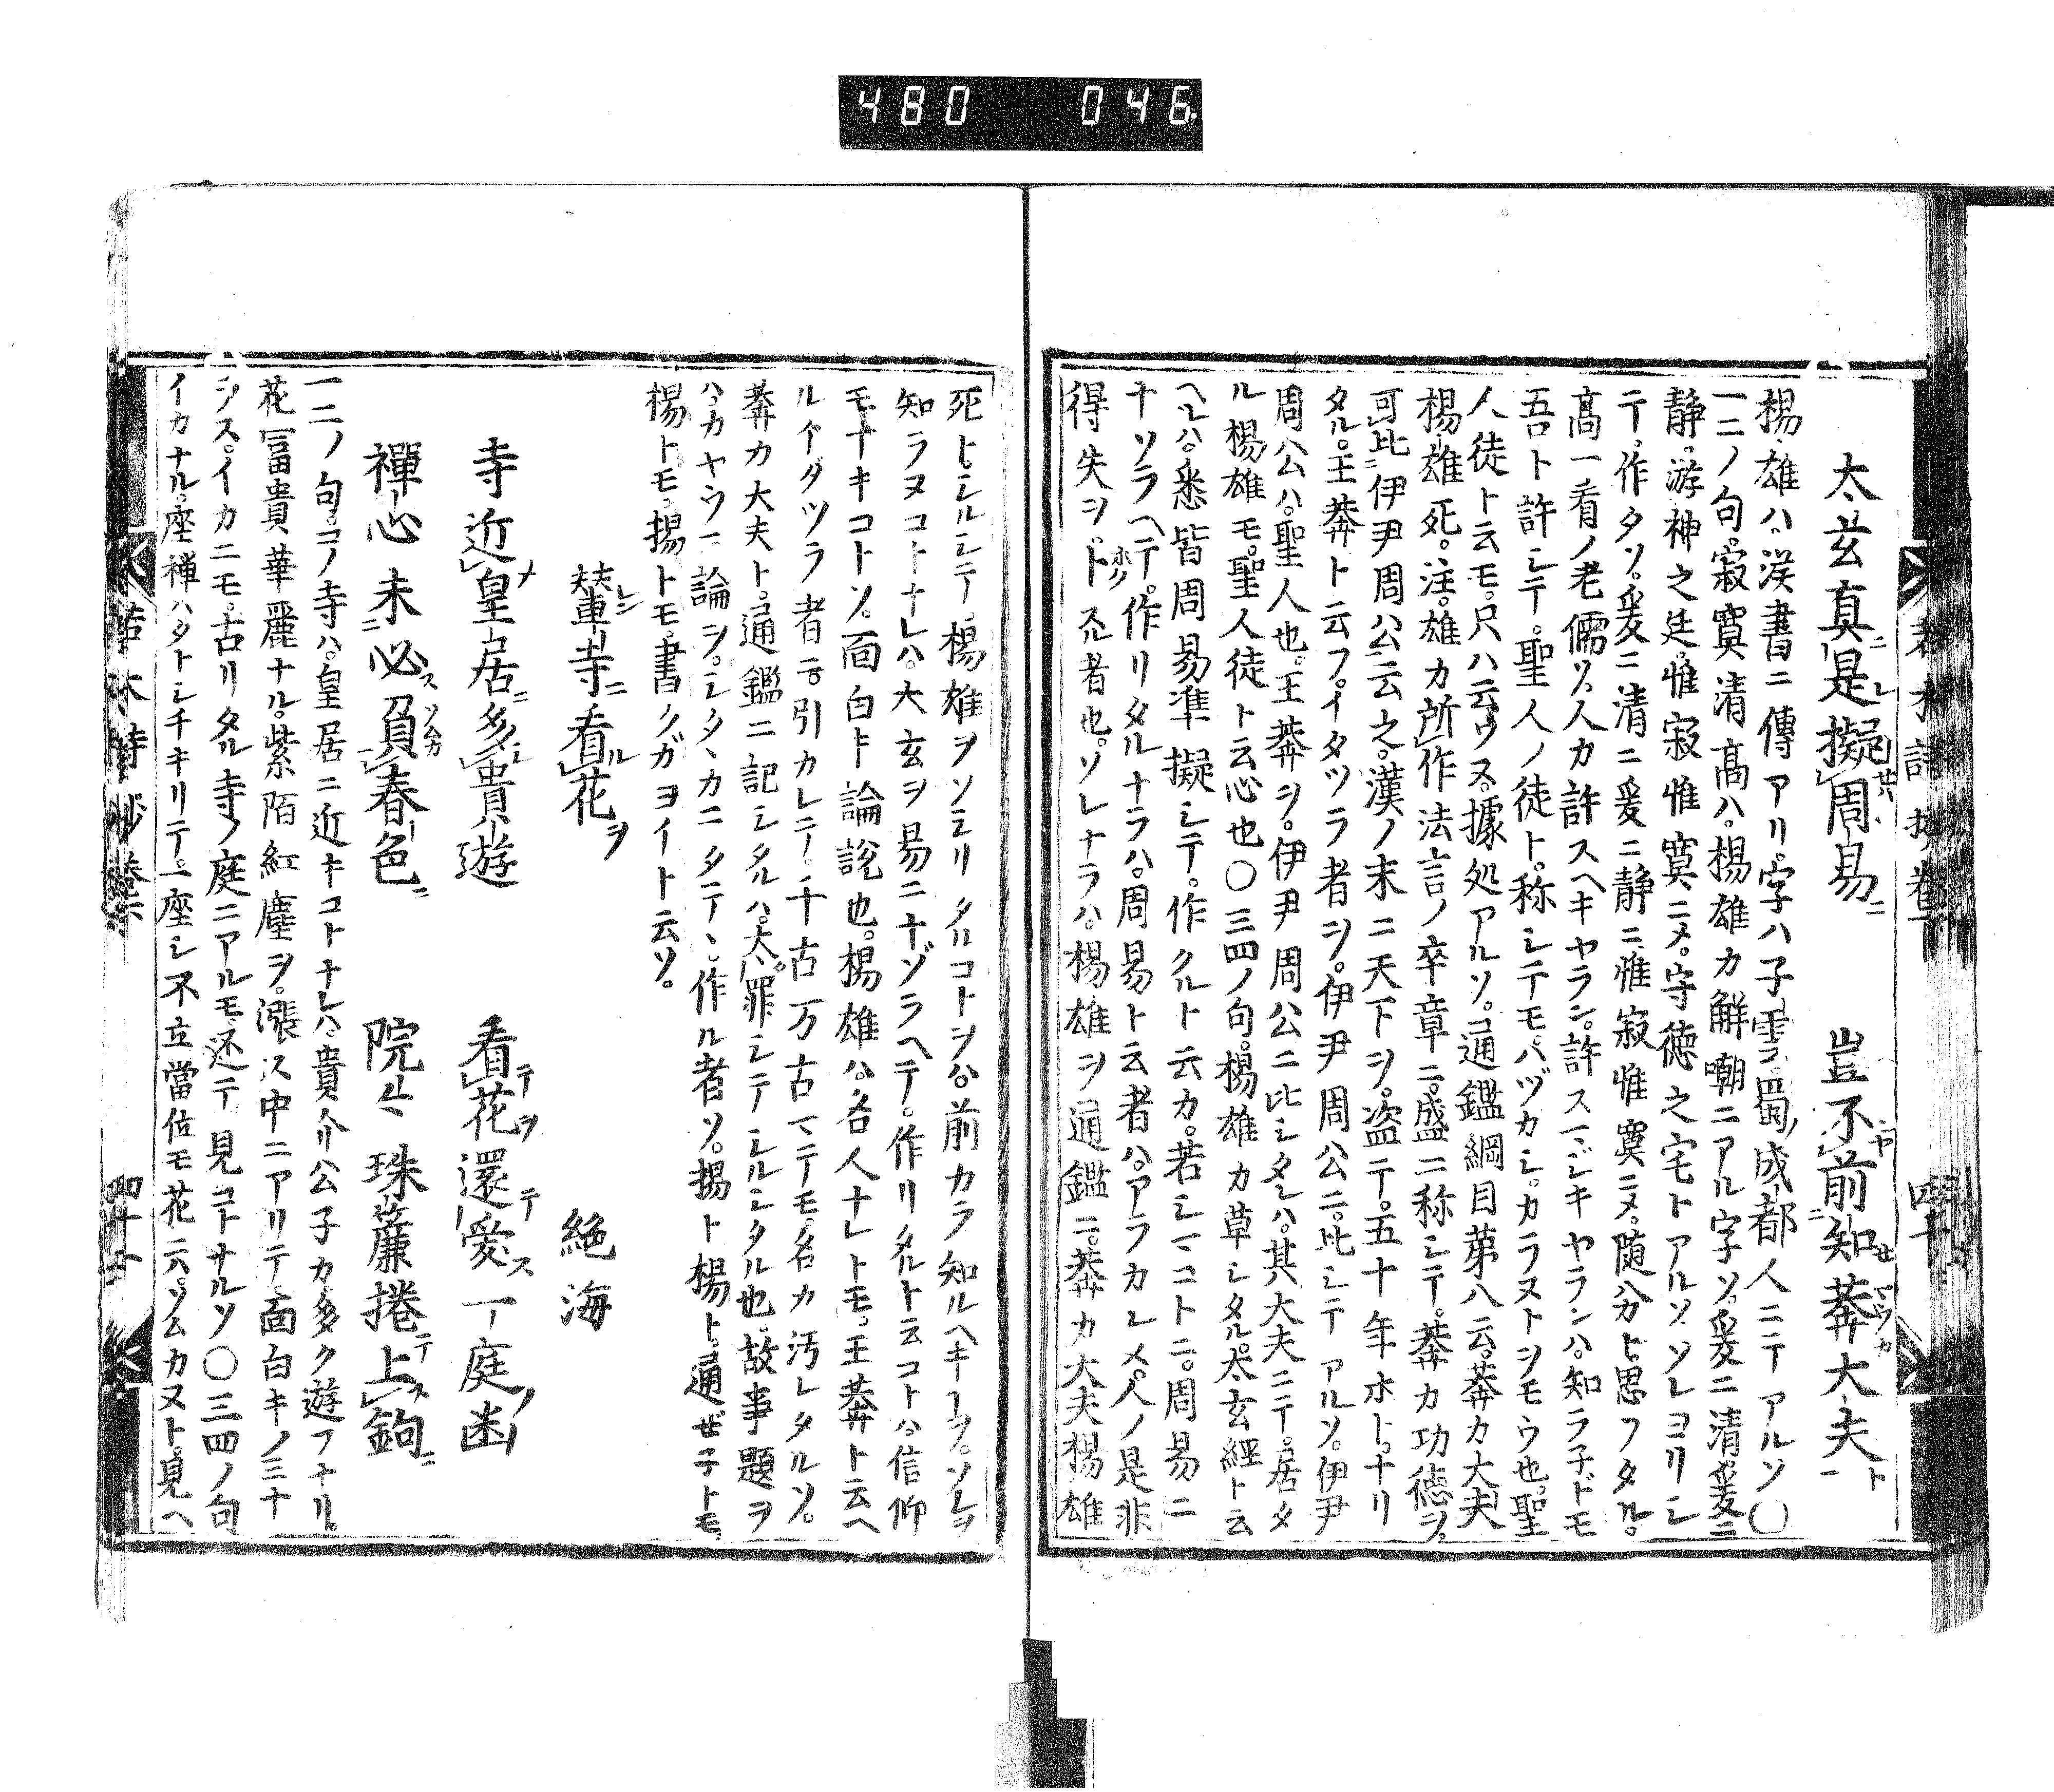 480 046
太玄真是擬周易 豈不前知莽大夫
楊雄ハ漢書ニ傳アリ字ハ子雲蜀ノ成都人ニテアルソ〇
一二ノ句寂寞清髙ハ楊雄カ解嘲ニアル字ソ爰ニ清爰ニ
静游神之廷惟寂惟寞ニメ守徳之宅トアルソソレヨリシ
テ作タソ爰ニ清ニ爰ニ静ニ惟寂惟寞ニメ随分ト思フタル
髙一看ノ老儒ソ人カ許スヘキヤラン許スマシキヤランハ知ラ子ドモ
吾ト許シテ聖人ノ徒ト称シテモハヅカシカラヌトヲモウ也聖
人徒ト云モ只ハ云ウヌ據処アルソ通鑑綱目第八云莽カ大夫
楊雄死注雄カ所作法言ノ卒章ニ盛ニ称シテ莽カ功徳ヲ
可比伊尹周公云之漢ノ末ニ天下ヲ盗テ五十年ホトナリ
タル王莽ト云フイタツラ者ヲ伊尹周公ニ比シテアルソ伊尹
周公ハ聖人也王莽ヲ伊尹周公ニ比シタレハ其大夫ニテ居タ
ル楊雄モ聖人徒ト云心也〇三四ノ句楊雄カ草シタル太玄經ト云
ヘレハ悉皆周易準擬シテ作クルト云カ若シマコトニ周易ニ
ナソラヘテ作リタルナラハ周易ト云者ハアラカシメ人ノ是非
得失ヲトス者也ソレナラハ楊雄ヲ通鑑ニ莽カ大夫楊雄
死トシルシテ楊雄ヲソシリタルコトヲハ前カラ知ルヘキヲソレヲ
知ラヌコトナレハ大玄ヲ易ニナゾラヘテ作リタルト云コトハ信仰
モナキコトソ面白ト論説也楊雄ハ名人ナレトモ王莽ト云ヘ
ルイタツラ者ニ引カレテ千古万古マテモ名カ汚レタルソ
莽カ大夫ト通鑑ニ記シタルハ大罪シテシルシタル也故事題ヲ
ハカヤウニ論ヲシタヽカニタテヽ作ル者ソ揚ト楊ト通せテトモ
楊トモ揚トモ書クガヨイト云ソ
輦寺看花 絶海
寺近皇居多貴遊 看花還愛一庭幽
禪心未必負春色 院々珠簾捲上鉤
一二ノ句コノ寺ハ皇居ニ近キコトナレハ貴介公子カ多ク遊フナリ
花冨貴華麗ナル紫陌紅塵ヲ漲ス中ニアリテ面白キノミナ
ラスイカニモ古リタル寺ノ庭ニアルモ还テ見コトナルソ〇三四ノ句
イカナル座禅ハタトシチキリテ一座シ不立當佐モ花ニハソムカヌト見ヘ